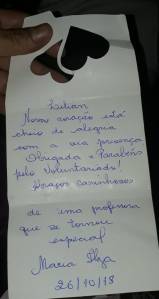 Lilian
Nosso coração está
cheio de alegria
com a sua presença
Obrigada e Parabéns
pelo Voluntariado!
Abraços carinhosos
de uma professora
que se tornou
especial
Maria Ilza
26/10/18